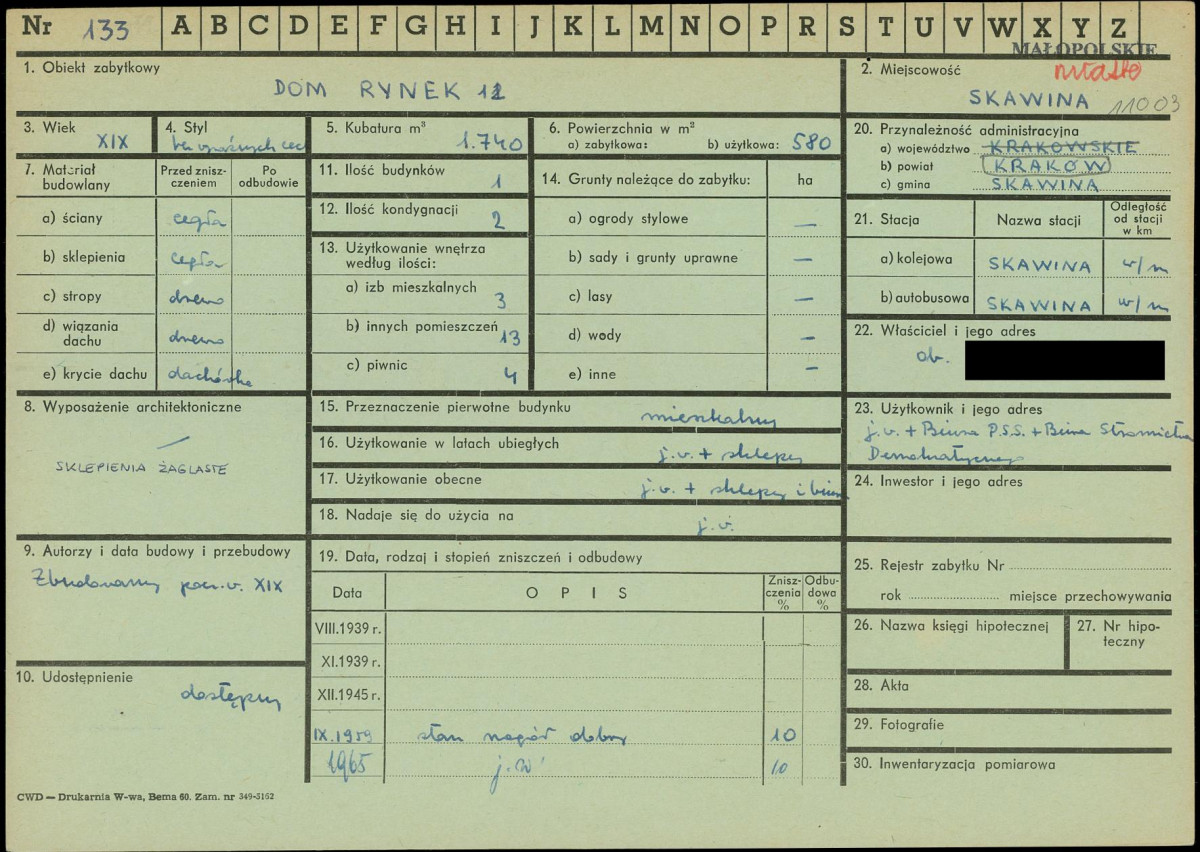 Nr 133 A B C D E F G H I J K L M N O P R S T U V W X Y Z
MAŁOPOLSKIE
1. Obiekt zabytkowy
DOM RYNEK 12
2. Miejscowość
miasto
SKAWINA 11003
3. Wiek
XIX
4. Styl
bez wyraźnych cech
5. Kubatura m³
1.740
6. Powierzchnia w m²
a) zabytkowa: b) użytkowa: 580
20. Przynależność administracyjna
a) województwo KRAKOWSKIE
b) powiat KRAKÓW
c) gmina SKAWINA
7. Materiał budowlany
Przed zniszczeniem
Po odbudowie
a) ściany cegła
b) sklepienia cegła
c) stropy drewno
d) wiązania dachu drewno
e) krycie dachu dachówka
11. Ilość budynków
1
12. Ilość kondygnacji
2
13. Użytkowanie wnętrza według ilości:
a) izb mieszkalnych 3
b) innych pomieszczeń 13
c) piwnic 4
14. Grunty należące do zabytku: ha
a) ogrody stylowe —
b) sady i grunty uprawne —
c) lasy —
d) wody —
e) inne —
21. Stacja
Nazwa stacji
Odległość od stacji w km
a) kolejowa SKAWINA w/m
b) autobusowa SKAWINA w/m
22. Właściciel i jego adres
ob.
8. Wyposażenie architektoniczne
—
SKLEPIENIA ŻAGLASTE
15. Przeznaczenie pierwotne budynku mieszkalny
16. Użytkowanie w latach ubiegłych j.w. + sklepy
17. Użytkowanie obecne j.w. + sklepy i biura
18. Nadaje się do użycia na j.w.
23. Użytkownik i jego adres
j.w. + Biura P.S.S. + Biura Stronnictwa
Demokratycznego
24. Inwestor i jego adres
9. Autorzy i data budowy i przebudowy
Zbudowany pocz. w. XIX
19. Data, rodzaj i stopień zniszczeń i odbudowy
Data OPIS Zniszczenia % Odbudowa %
VIII.1939 r.
XI.1939 r.
XII.1945 r.
IX.1959 stan naogół dobry 10
1965 j.w 10
25. Rejestr zabytku Nr
rok miejsce przechowywania
26. Nazwa księgi hipotecznej
27. Nr hipoteczny
10. Udostępnienie
dostępny
28. Akta
29. Fotografie
30. Inwentaryzacja pomiarowa
CWD — Drukarnia W-wa, Bema 60. Zam. nr 349-5162